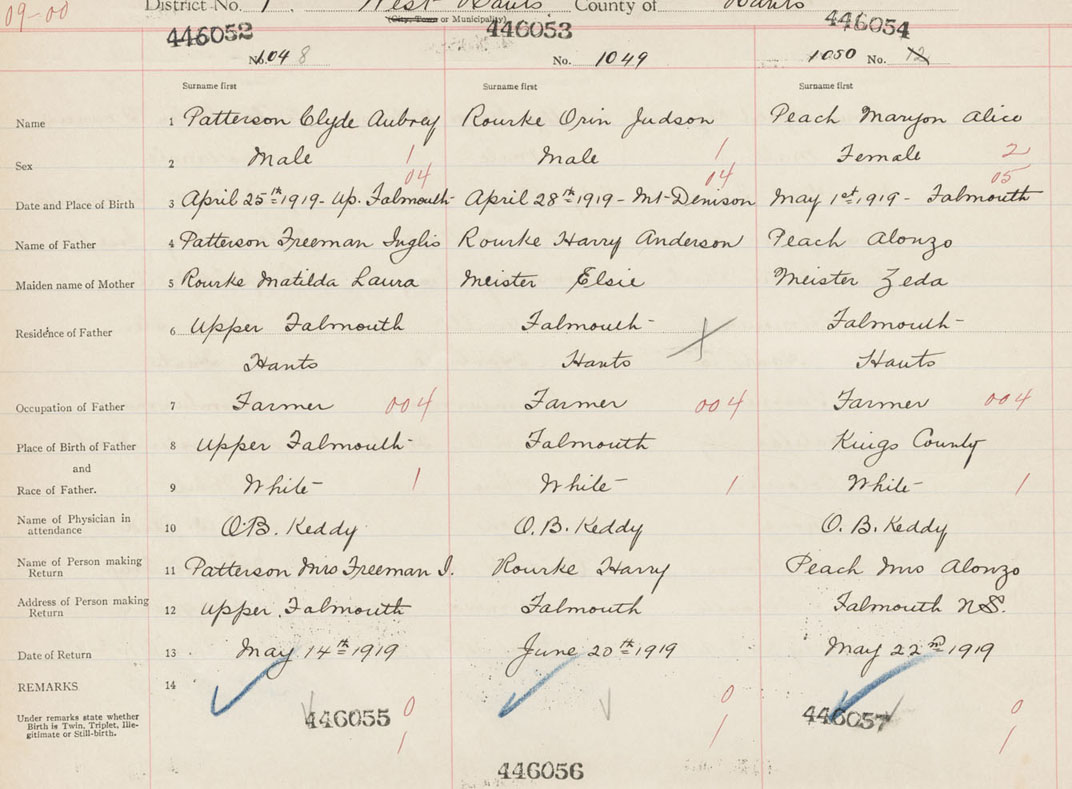 09-00
District No. 1. West Hants County of Hants
(City, Town or Municipality)
446052 446053 446054
No. 1048 No. 1049 1050 No. 12
Surname first Surname first Surname first
Name 1 Patterson Clyde Aubray Rourke Orin Judson Peach Maryon Alice
Sex 2 Male 1 Male 1 Female 2
04 04 05
Date and Place of Birth 3 April 25th 1919 - Up. Falmouth April 28th 1919 - Mt Denison May 1st 1919 - Falmouth
Name of Father 4 Patterson Freeman Inglis Rourke Harry Anderson Peach Alonzo
Maiden name of Mother 5 Rourke Matilda Laura Meister Elsie Meister Zeda
Residence of Father 6 Upper Falmouth Falmouth Falmouth
Hants Hants X Hants
Occupation of Father 7 Farmer 004 Farmer 004 Farmer 004
Place of Birth of Father 8 Upper Falmouth Falmouth Kings County
and
Race of Father. 9 White 1 White 1 White 1
Name of Physician in
attendance 10 O.B. Keddy O.B. Keddy O.B. Keddy
Name of Person making
Return 11 Patterson Mrs Freeman I. Rourke Harry Peach Mrs Alonzo
Address of Person making
Return 12 Upper Falmouth Falmouth Falmouth N.S.
Date of Return 13 May 14th 1919 June 20th 1919 May 22nd 1919
REMARKS 14
Under remarks state whether
Birth is Twin, Triplet, Ille-
gitimate or Still-birth.
446055 0 0 446057 0
1 1 1
446056